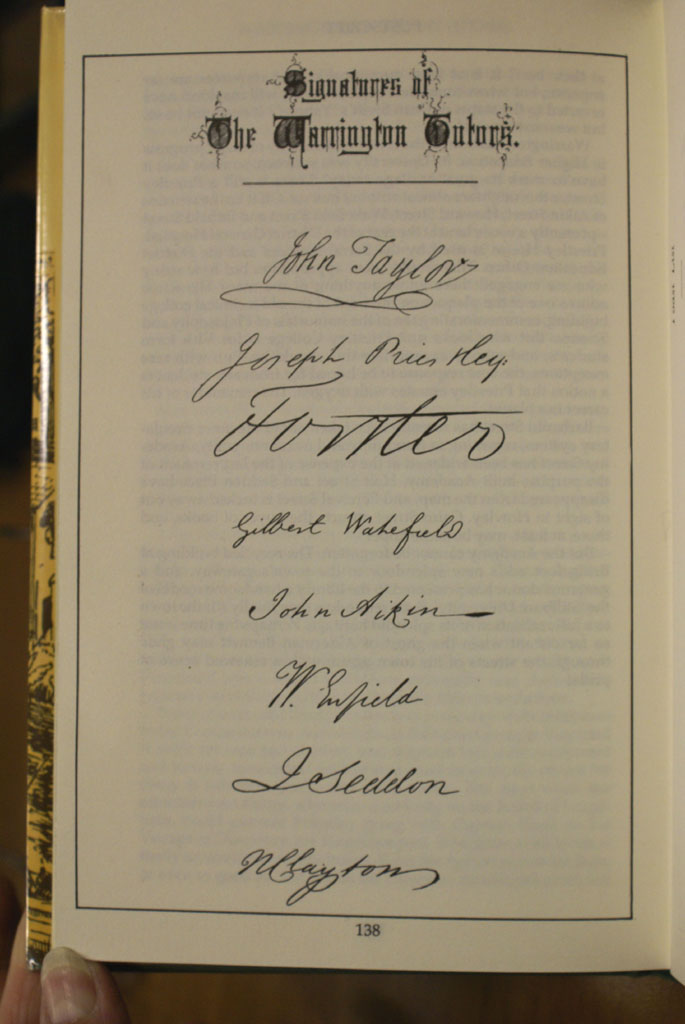 Signatures of
The Warrington Tutors.
John Taylor
Joseph Priestley.
Forster
Gilbert Wakefield
John Aikin
W. Enfield
J Seddon
N Clayton
138